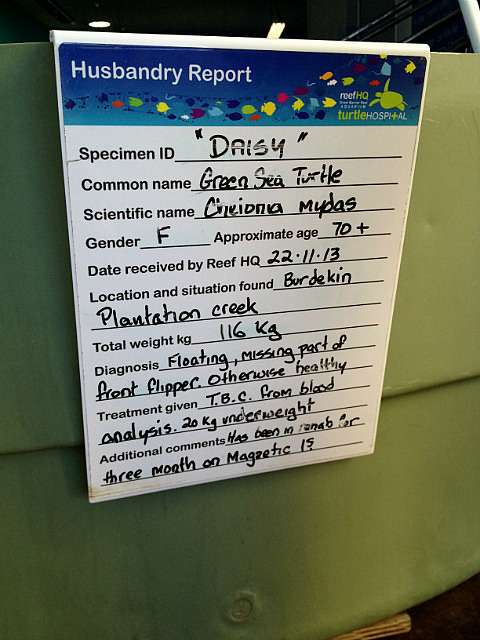 Husbandry Report
reefHQ
Great Barrier Reef
AQUARIUM
turtleHOSPITAL
Specimen ID "DAISY"
Common name Green Sea Turtle
Scientific name Chelonia Mydas
Gender F Approximate age 70+
Date received by Reef HQ 22.11.13
Location and situation found Burdekin
Plantation creek
Total weight kg 116 Kg
Diagnosis Floating, missing part of
front flipper. Otherwise healthy
Treatment given T.B.C. from blood
analysis. 20 kg underweight
Additional comments Has been in rehab for
three month on Magnetic IS